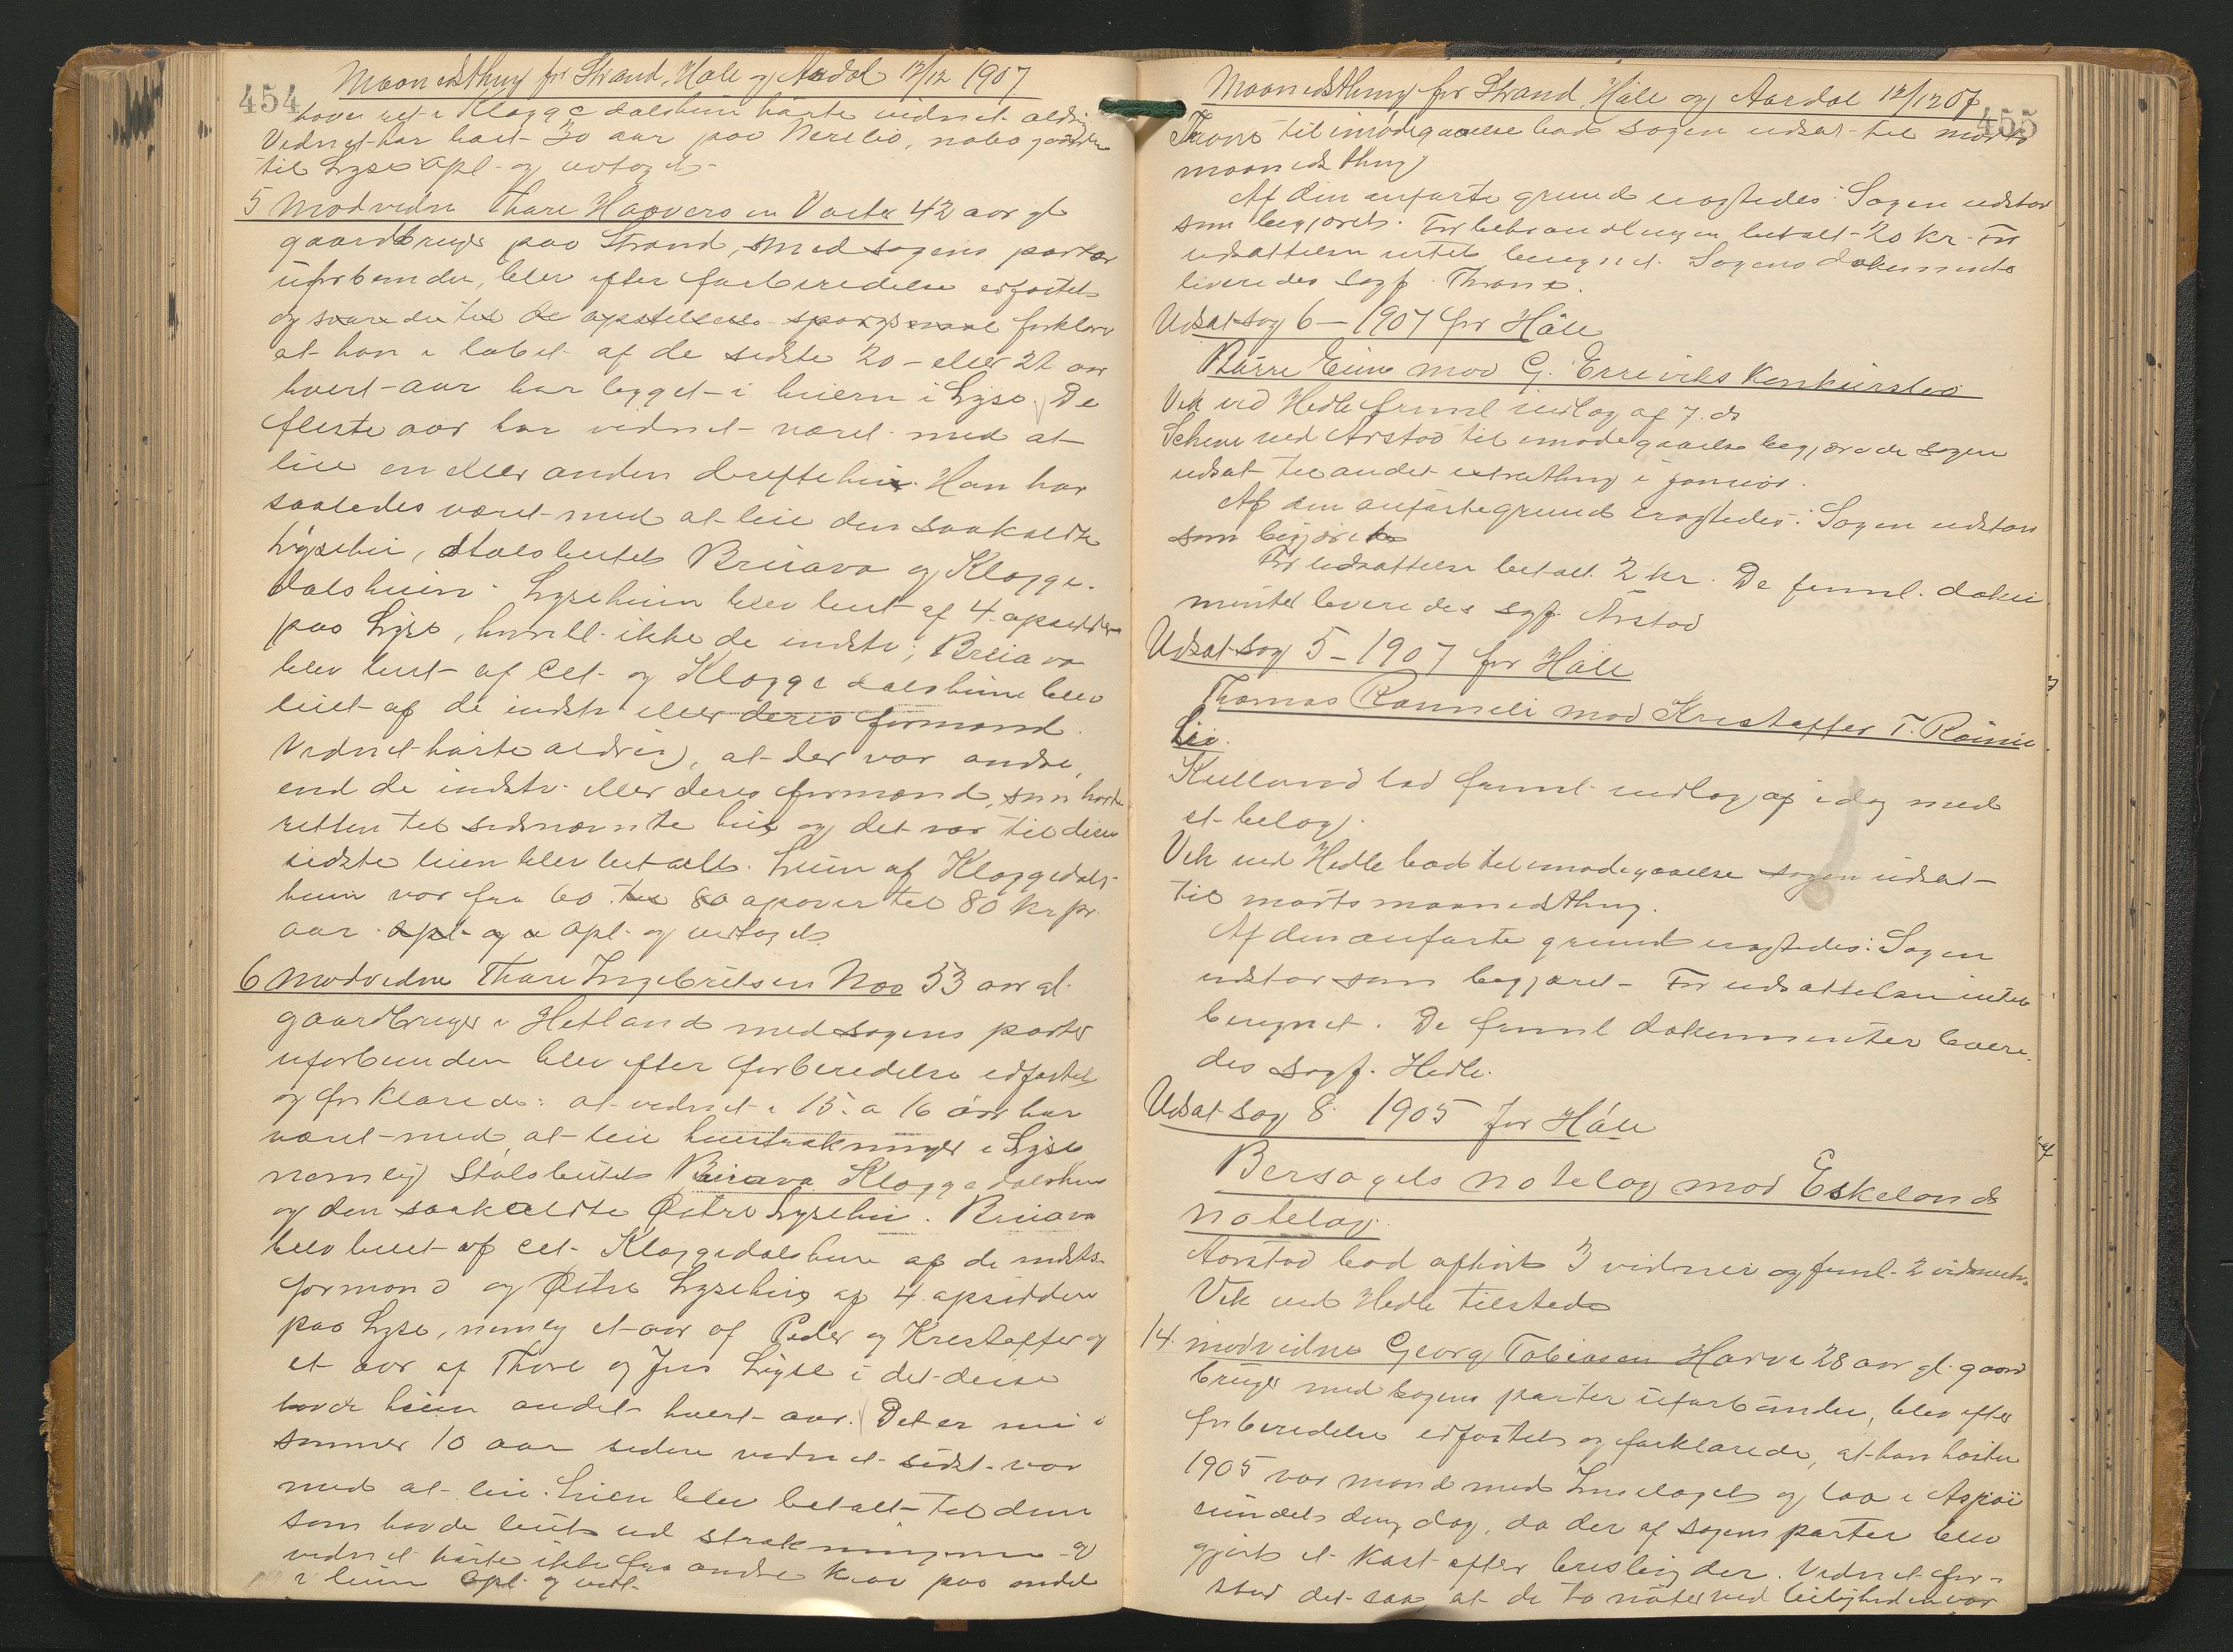 454
Maanedsthing for Strand, Høle og Aardal 12/12 1907
havei ret i Kloggedalsheien hørte vidnet aldri
Vidnet har boet 30 aar paa Nerebø, nabogaarden
til Lyse opl. og vedtoges
5 Modvidne Thore Haaversen Valter 42 aar gl
gaardbruger paa Strand, med sagens parter
uforbunden, blev efter forberedelse edfæstet
og svarede til de opstillede spørgsmaal forklare
at han i løbet af de sidste 20 eller 22 aar
hvert aar har ligget i heien i Lyse. De
fleste aar har vidnet været med at
leie en eller anden driftehei. Han har
saaledes været med at leie den saakaldte
Lysehei, Stølsbeitet Breiava og Klogge-
dalsheien. Lyseheien blev leiet af 4 opsiddere
paa Lyse, ikke de indstv; Breiava
blev leiet af cet. og Kloggedalsheien blev
leiet af de indstv eller deres formænd.
Vidnet hørte aldrig, at der var andre,
end de indstv. eller deres formænd, som havde
retten til sidnævnte hei og det var til disse
sidste leien blev betalt. Leien af Kloggedals-
heien var fra 60 til 80 opover til 80 kr pr.
aar opl og v opl. og vedtoges.
6 Modvidne Thore Ingebretsen Noo 53 aar gl.
gaardbruger i Hetland med sagens parter
uforbunden blev efter forberedelse edfæstet
og forklarede: at vidnet i 15 a 16 aar har
været med at leie heiestrækninger i Lyse
nemlig Stølsbeitet Breiava Kloggedalsheien
og den saakaldte Østre Lysehei. Breiava
blev leiet af cet. Kloggedalsheien af de indsts.
formænd og Østre Lysehei af 4 opsiddere
paa Lyse, nemlig et aar af Peder og Kristoffer og
et aar af Thore og Jens Lyse i det disse
havde heien andet hvert aar. Det er nu i
sommer 10 aar siden vidnet sidst var
med at leie. Leien blev betalt til dem
som havde leiet ud strækningerne og
vidnet hørte ikke fra andre krav paa andel
i leien opl. og vedt.
455
Maanedsthing for Strand Høle og Aardal 12/12 07
Thrane til imødegaaelse bad sagen udsat til marts
maanedsthing
Af den anførte grund eragtedes: Sagen udstaar
som begjæret. For behandlingen betalt 20 kr. For
udsættelsen intet beregnet. Sagens dokumenter
leveredes sagf. Thrane.
Udsat sag 6 - 1907 for Høle
Børre Eime mod G. Erreviks Konkursbo
Vik ved Hedle freml indlæg af 7. ds
Scheie ved Arstad til imødegaaelse begjærede sagen
udsat til andet extrathing i januar.
Af den anførte grund eragtedes: Sagen udstaar
som begjæret
For udsættelse betalt 2 kr. De freml. doku
menter leveredes sgf. Årstad
Udsat sag 5 - 1907 for Høle
Thomas Rønneli mod Kristoffer T. Rønne
li.
Kielland lod freml. indlæg af idag med
et belæg.
Vik ved Hedle bad til imødegaaelse sagen udsat
til marts maanedsthing.
Af den anførte grund eragtedes: Sagen
udstaar som begjæret. For udsættelsen intet
beregnet. De freml dokumenter levere-
des sagf. Hedle.
Udsat sag 8. 1905 for Høle
Bersagels notelag mod Eskelands
notelag.
Aarstad lod afhøre 3 vidner og freml. 2
Vik ved Hedle tilstede
14. modvidne Georg Tobiasen Harve 28 aar gl. gaard
bruger med sagens parter uforbunden, blev efter
forberedelse edfæstet og forklarede, at han høsten
1905 var mand med og laa i Aspøi
sundet den dag, da der af sagens parter blev
gjort et kast efter brisling der. Vidnet for-
stod det saa at de to nøter ved leiligheden var